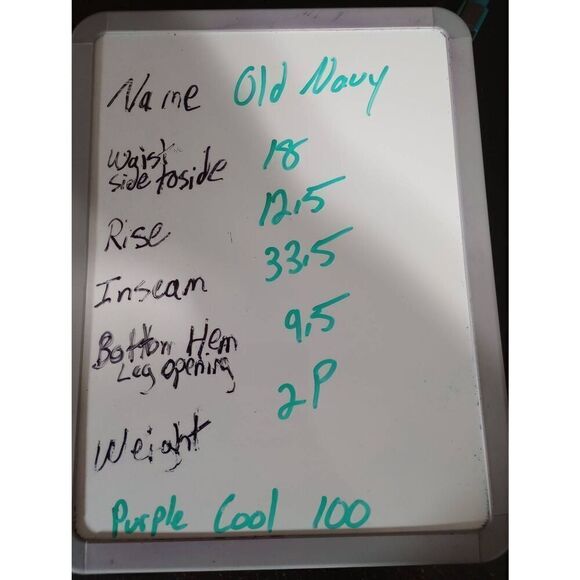 Name Old Navy
Waist 18
side to side
Rise 12.5
Inseam 33.5
Bottom Hem 9.5
Leg opening
Weight 2P
Purple Cool 100